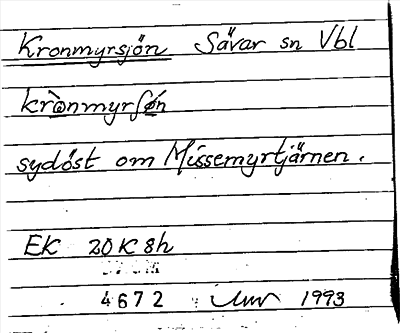 Kronmyrsjön Sävar sn Vbl
krònmyrʃø̀n
sydöst om Missemyrtjärnen.
EK 20K 8h
4672 1993